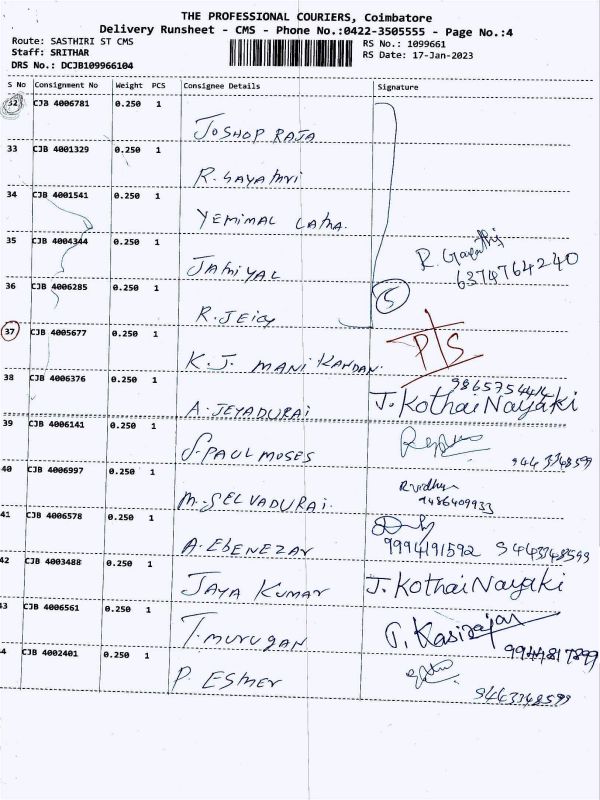 THE PROFESSIONAL COURIERS, Coimbatore
Delivery Runsheet - CMS - Phone No.:0422-3505555 - Page No.:4
Route: SASTHIRI ST CMS RS No.: 1099661
Staff: SRITHAR RS Date: 17-Jan-2023
DRS No.: DCJB109966104
S No Consignment No Weight PCS Consignee Details Signature
32 CJB 4006781 0.250 1
JOSHOP RAJA
33 CJB 4001329 0.250 1
R. GAYATHRI
34 CJB 4001541 0.250 1
YEMIMAL LATHA.
35 CJB 4004344 0.250 1
R. Gayathri
6374764240
JAMIYAL
36 CJB 4006285 0.250 1
5
R. JEICY
37 CJB 4005677 0.250 1
P/S
K.J. MANI KANDAN.
38 CJB 4006376 0.250 1
A. JEYADURAI J. Kothai Nayaki
39 CJB 4006141 0.250 1
S. PAUL MOSES
40 CJB 4006997 0.250 1
9486409933
M. SELVADURAI.
41 CJB 4006578 0.250 1
A. EBENEZAR 9994191592
42 CJB 4003488 0.250 1
JAYA KUMAR J. Kothai Nayaki
43 CJB 4006561 0.250 1
T. MURUGAN T. Kasirajan
9944817899
44 CJB 4002401 0.250 1
P. ESTHER